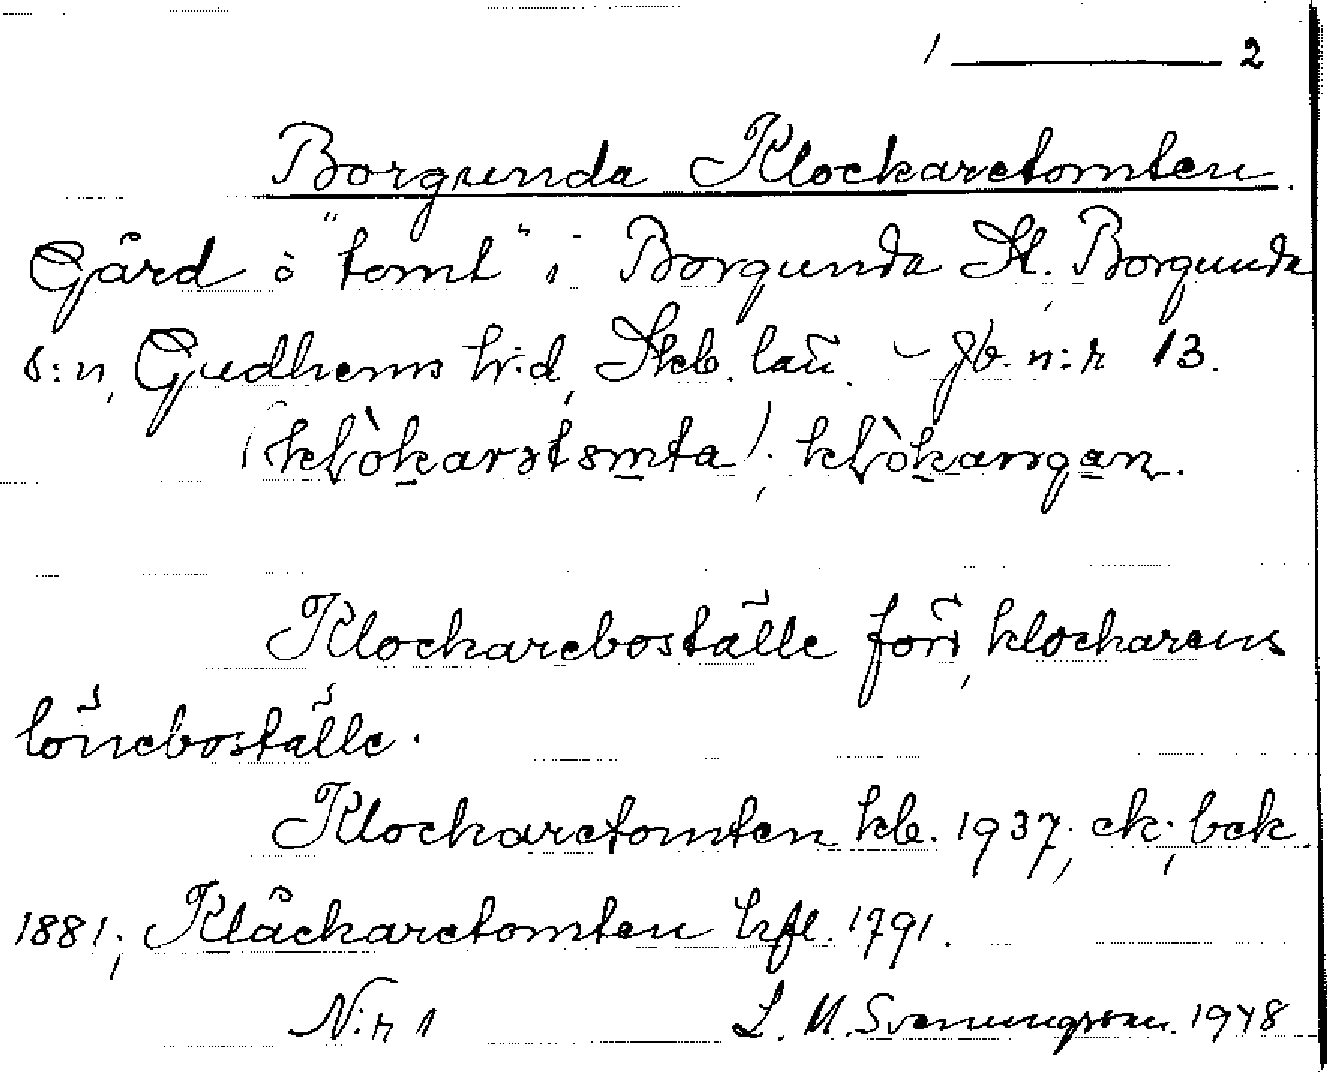 1 ——— 2
Borgunda Klockaretomten.
Gård o "tomt" i Borgunda St. Borgunda
s:n, Gudhems h:d, Skb. län. – Jb. n:r 13.
(klòkarətomta); klòkarəgan.
Klockareboställe förr, klockarens
löneboställe.
Klockaretomten kb. 1937; ek; bek.
1881; Klåckaretomten hfl. 1791.
N:r 1 L. M. Svenungsson. 1948